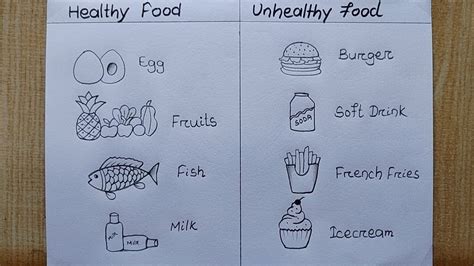 Healthy Food
Egg
Fruits
Fish
Milk
Unhealthy Food
Burger
SODA
Soft Drink
French Fries
Icecream